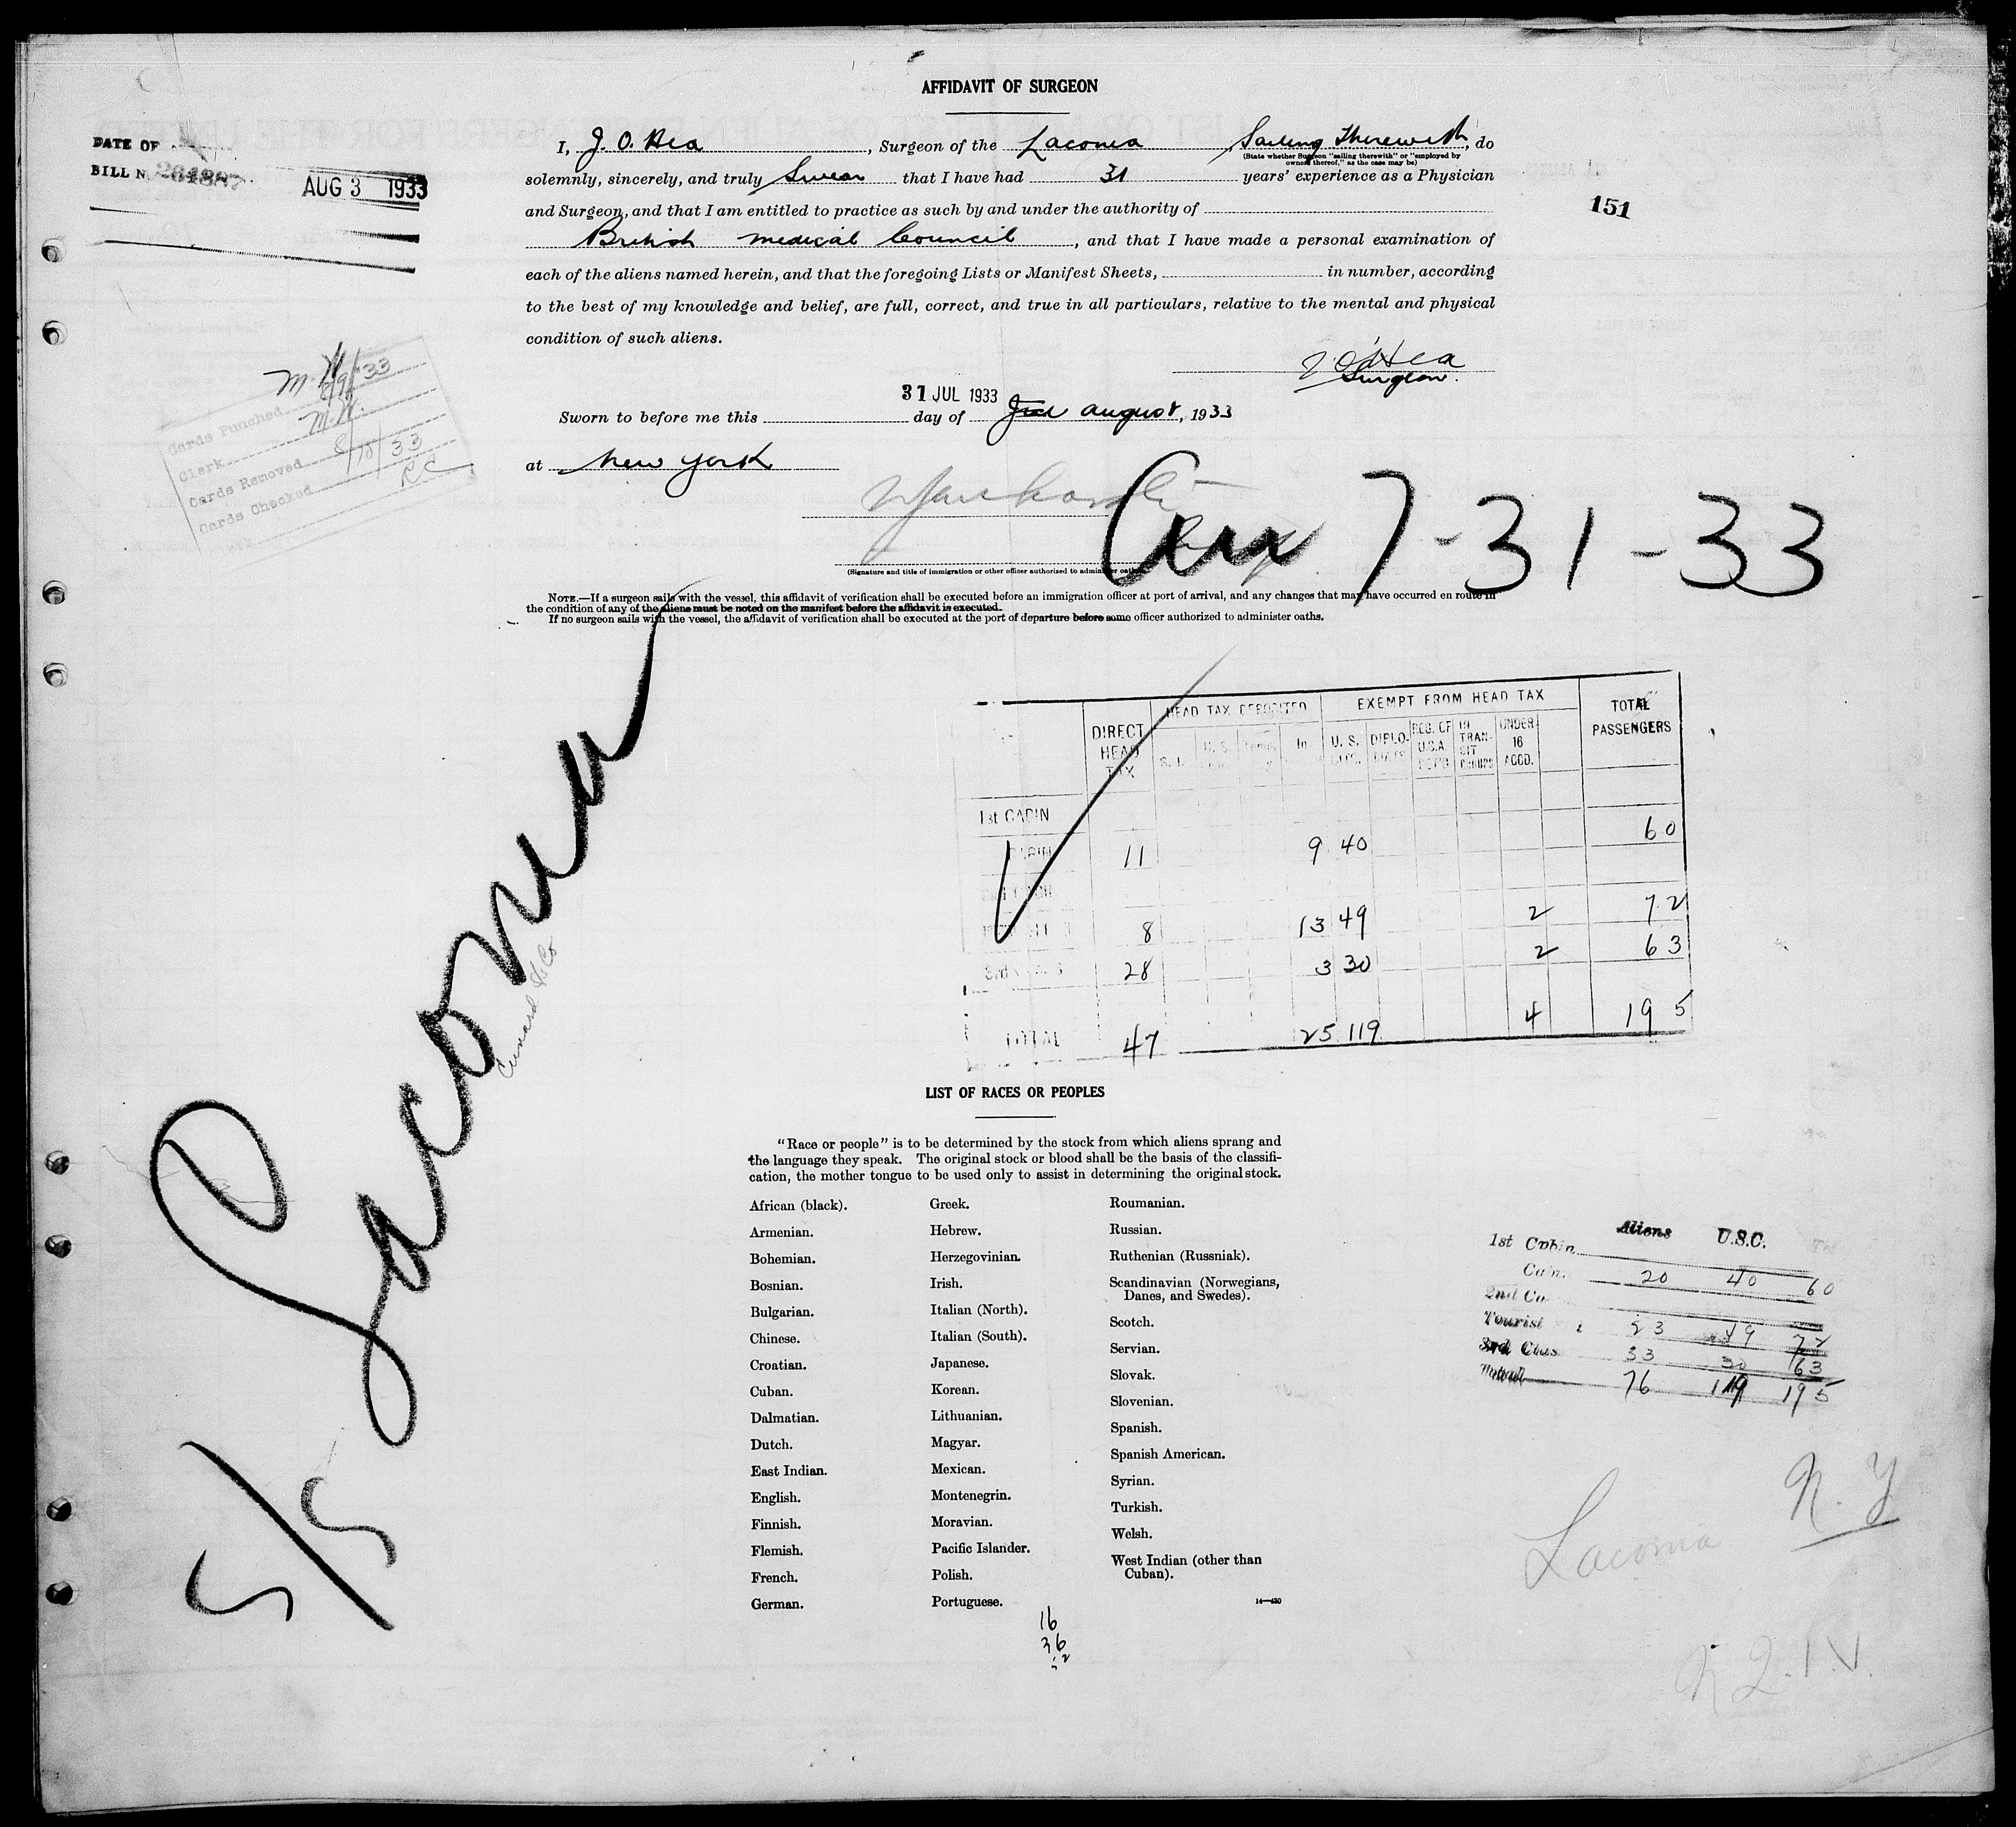 AFFIDAVIT OF SURGEON
DATE OF
BILL N. 264887
AUG 3 1933
151
I, J. O. Hea, Surgeon of the Laconia Sailing Therewith, do
(State whether Surgeon "sailing therewith" or "employed by
owners thereof," as the case may be)
solemnly, sincerely, and truly Swear that I have had 31 years' experience as a Physician
and Surgeon, and that I am entitled to practice as such by and under the authority of
British medical Council, and that I have made a personal examination of
each of the aliens named herein, and that the foregoing Lists or Manifest Sheets, in number, according
to the best of my knowledge and belief, are full, correct, and true in all particulars, relative to the mental and physical
condition of such aliens.
J O'Hea
Surgeon.
31 JUL 1933
Sworn to before me this day of august, 1933
at New York
M.H. 8/9/33
Cards Punched
M.H.
Clerk
Cards Removed 8/10/33
Cards Checked RC
Arr 7-31-33
(Signature and title of immigration or other officer authorized to administer oaths)
NOTE.—If a surgeon sails with the vessel, this affidavit of verification shall be executed before an immigration officer at port of arrival, and any changes that may have occurred en route in
the condition of any of the aliens must be noted on the manifest before the affidavit is executed.
If no surgeon sails with the vessel, the affidavit of verification shall be executed at the port of departure before some officer authorized to administer oaths.
DIRECT HEAD TAX
HEAD TAX DEPOSITED
EXEMPT FROM HEAD TAX
TOTAL PASSENGERS
U. S. CITS.
DIPLO-MATS
REG. OF U.S.A. RET'D
IN TRAN-SIT GROUPS
UNDER 16 ACCD.
1st CABIN
CABIN 11 9 40 60
8 13 49 2 72
3rd CLASS 28 3 30 2 63
TOTAL 47 25 119 4 195
S/S Laconia
Cunard SS Co
LIST OF RACES OR PEOPLES
"Race or people" is to be determined by the stock from which aliens sprang and
the language they speak. The original stock or blood shall be the basis of the classifi-
cation, the mother tongue to be used only to assist in determining the original stock.
African (black).
Armenian.
Bohemian.
Bosnian.
Bulgarian.
Chinese.
Croatian.
Cuban.
Dalmatian.
Dutch.
East Indian.
English.
Finnish.
Flemish.
French.
German.
Greek.
Hebrew.
Herzegovinian.
Irish.
Italian (North).
Italian (South).
Japanese.
Korean.
Lithuanian.
Magyar.
Mexican.
Montenegrin.
Moravian.
Pacific Islander.
Polish.
Portuguese.
Roumanian.
Russian.
Ruthenian (Russniak).
Scandinavian (Norwegians,
Danes, and Swedes).
Scotch.
Servian.
Slovak.
Slovenian.
Spanish.
Spanish American.
Syrian.
Turkish.
Welsh.
West Indian (other than
Cuban).
14—430
16
36
52
Aliens U.S.C.
1st Cabin
Cabin 20 40 60
2nd Ca
Tourist 23 49 72
3rd Class 33 30 63
Total 76 119 195
N. Y
Laconia